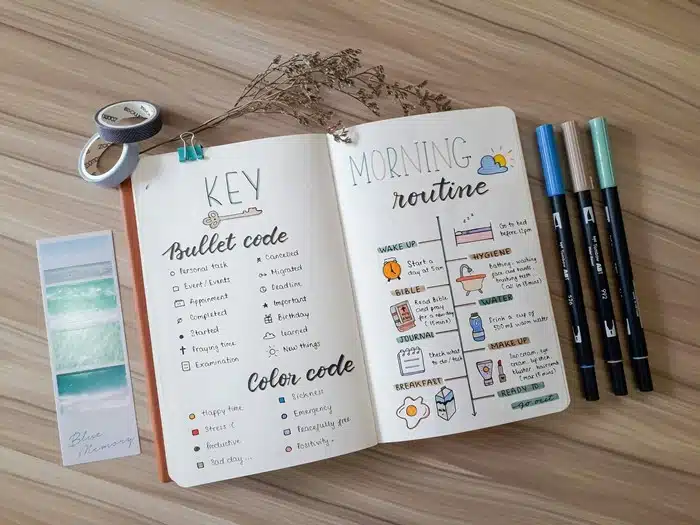 KEY
Bullet code
Personal task
Event / Events
Appoinment
Completed
Started
Praying time
Examination
Cancelled
Migrated
Deadline
Important
Birthday
Learned
New things
Color code
Happy time
Stress :(
Productive
Sad day ...
Sickness
Emergency
Peacefully free
Positivity
MORNING
routine
zzz
Go to bed
before 12pm
WAKE UP
Start a
day at 5am
HYGIENE
Bathing, washing
face and hands
brushing teeth
BIBLE
Read Bible
and pray
for a new day
(15mins)
WATER
Drink a cup of
350ml warm water
JOURNAL
Check what
to do / task
MAKE UP
(max 15 mins)
BREAKFAST
READY TO
go out
Blue
Memory